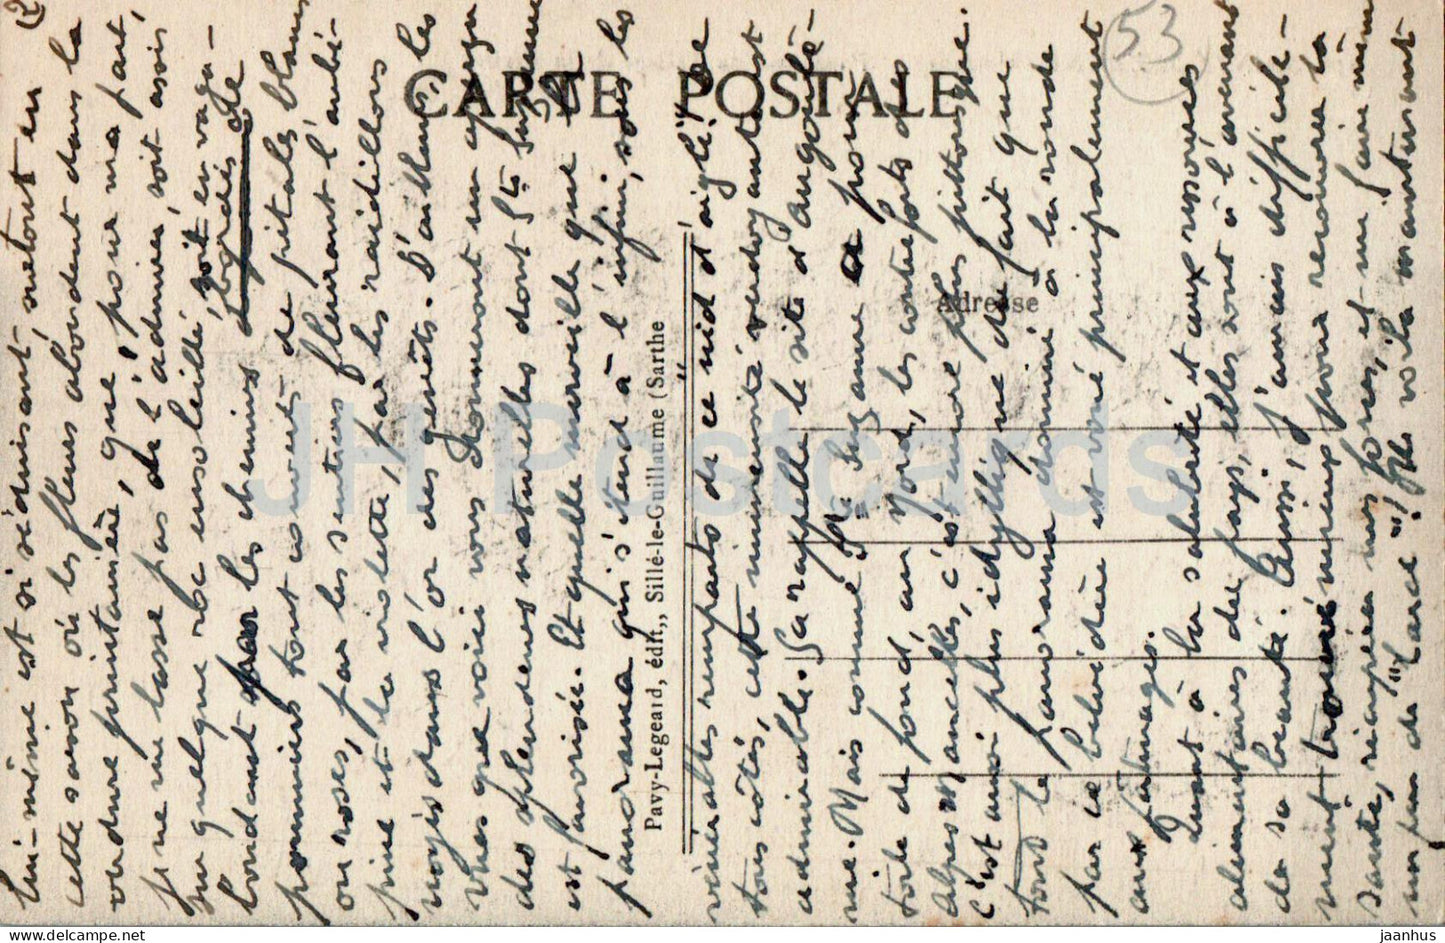 (2
lui-même est si séduisant, surtout en
cette saison où les fleurs abondent dans la
verdure printanière, que, pour ma part,
je ne me lasse pas de l'admirer, soit assis
sur quelque roc ensoleillé, soit en vaga-
bondant par les chemins bordés de
pommiers tout couverts de pétales blancs
ou roses, par les sentiers fleurant l'aubé-
pine et la violette, par les raidillons
rougis dans l'or des genêts. D'ailleurs, les
vues que voici vous donneront un aperçu
des splendeurs naturelles dont Ste Suzanne
est favorisée. Et quelle merveille que le
panorama qui s'étend à l'infini, sous les
vénérables remparts de ce nid d'aigle! De
tous côtés, cette immensité verdoyante est
admirable. Ça rappelle le site d'Angoulê-
me. Mais comme Ste Suzanne a pour
toile de fond, au Nord, les contreforts des
Alpes Mancelles, c'est encore plus pittoresque.
C'est aussi plus idyllique du fait que
tout le panorama dominé à la ronde
par ce belvédère est voué principalement
aux pâturages.
Quant à la salubrité et aux ressources
alimentaires du pays, elles sont à l'avenant
de sa beauté. Aussi, j'aurais difficile-
ment trouvé mieux pour recouvrer la
santé, récupérer mes forces, et me faire même
un peu de "lard"! Me voilà maintenant
CARTE POSTALE
Adresse
Pavy-Legeard, édit., Sillé-le-Guillaume (Sarthe
53
JH Postcards
jaanhus @ www.delcampe.net